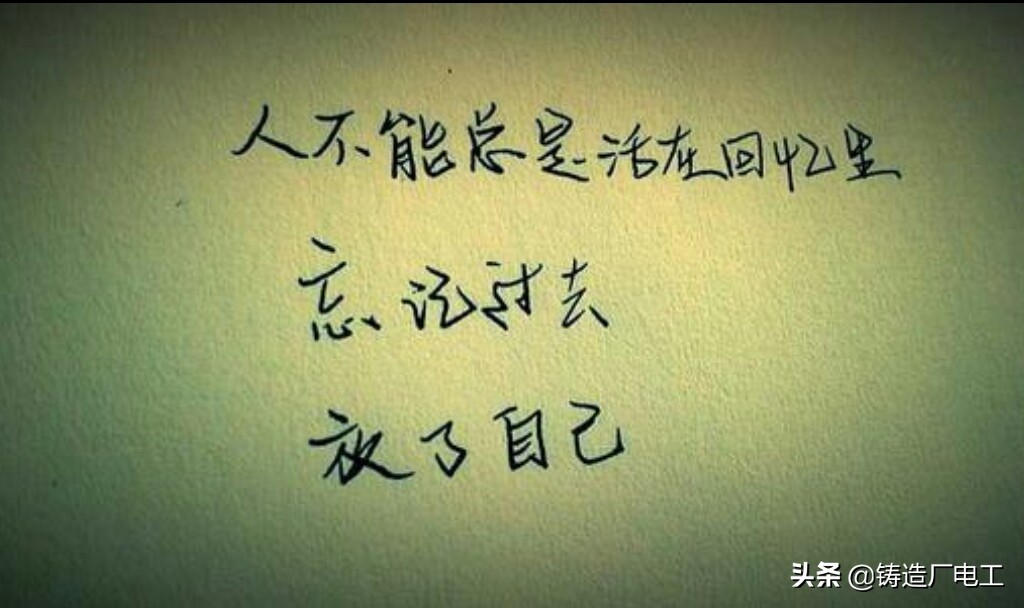 人不能总是活在回忆里
忘记过去
放了自己
头条 @铸造厂电工